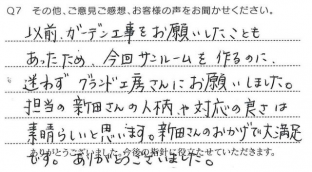 Q7 その他、ご意見ご感想、お客様の声をお聞かせください。
以前、ガーデン工事をお願いしたことも
あったため、今回サンルームを作るのに、
迷わずグランド工房さんにお願いしました。
担当の新田さんの人柄や対応の良さは
素晴らしいと思います。新田さんのおかげで大満足
です。ありがとうございました。
ありがとうございました。今後の指針に役立たせていただきます。